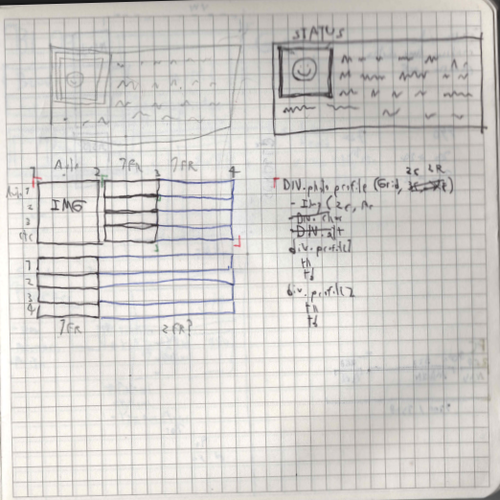 STATUS
1 Auto 2 1FR 3 1FR 4
Auto 1
IMG
2
3
etc
3
1
2
3
4
1FR 2FR?
2c 2R
DIV.photo_profile (Grid,
- Img (2c,
DIV.
DIV.alt
div.profile1
th
td
div.profile2
th
td